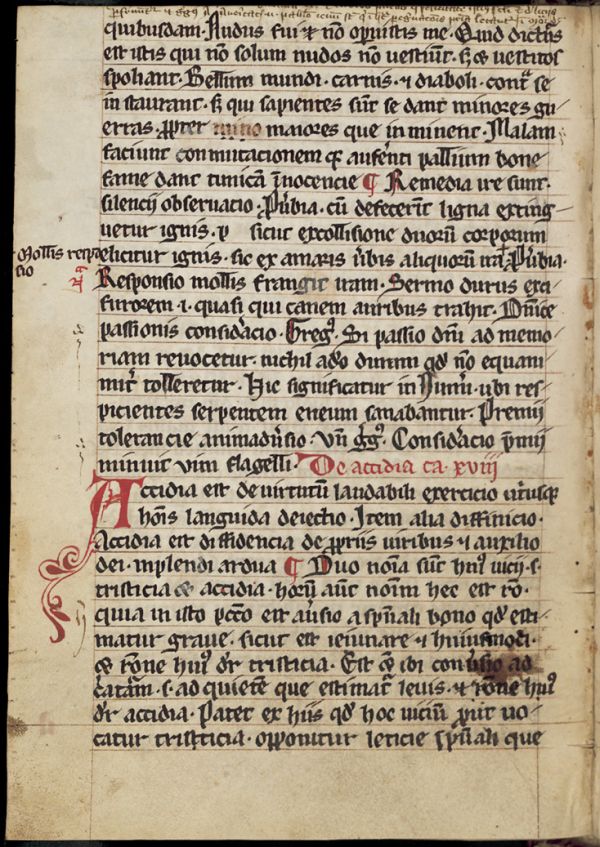 quibusdam. Nudus fui et nō opuistis me. Quid dictis
est istis qui nō solum nudos nō vestiūt. sȝ et vestitos
spoliant. Bellum mundi. carnis. et diaboli. cont̄ se
in staurant. sȝ qui sapientes sūt se dant minores gu
erras. ꝓpter maiores que in minent. Malam
faciunt conmutacionem qȝ auferēti pallium bone
fame dant tunicā īnocencie ¶ Remedia ire sunt.
silencii observacio. Puͥbia. cū defecerīt ligna exting
uetur ignis. sicut ex collisione duorū corporum
Mollis respō
sio
elicitur ignis. sic ex amaris v̾bis aliquorū ira. Puͥbia.
Responsio mollis frangit iram. Sermo durus exci
furorem. i. quasi qui canem auribus trahit. Dn̄ice
passionis consid̾acio. Greg⁹. Si passio dn̄i ad memo
riam revocetur. nichil adeo durum qd̄ nō equani
mit̾ tolleretur. Hic significatur in Num̾i. ubi res
picientes serpentem eneum sanabantur. Premii
tolerancie animad̾sio. Vn̄ gg⁹. Consid̾acio p̄mii
minuit vim flagelli. De accidia ca. xviii
Accidia est de virtutū laudabili exercicio ut̾usqȝ
hoīs languida deiectio. Item alia diffinicio.
Accidia est diffidencia de ꝓpriis viribus et auxilio
dei. inplendi ardua ¶ Duo noīa sūt hui⁹ vicii. s.
tristicia et accidia. horū aūt noīm hec est rō.
quia in isto pccō est av̾sio a spūali bono qd̄ esti
matur grave. sicut est ieiunare et huiusmodi.
et rōne hui⁹ dr̄ tristicia. Est et ibi conv̾sio ad
c̾atām. s. ad quietē que estimat̾ levis. et rōne hui⁹
dr̄ accidia. Patet ex hiis qd̄ hoc viciū ꝓut vo
catur tristicia. opponitur leticie spūali que